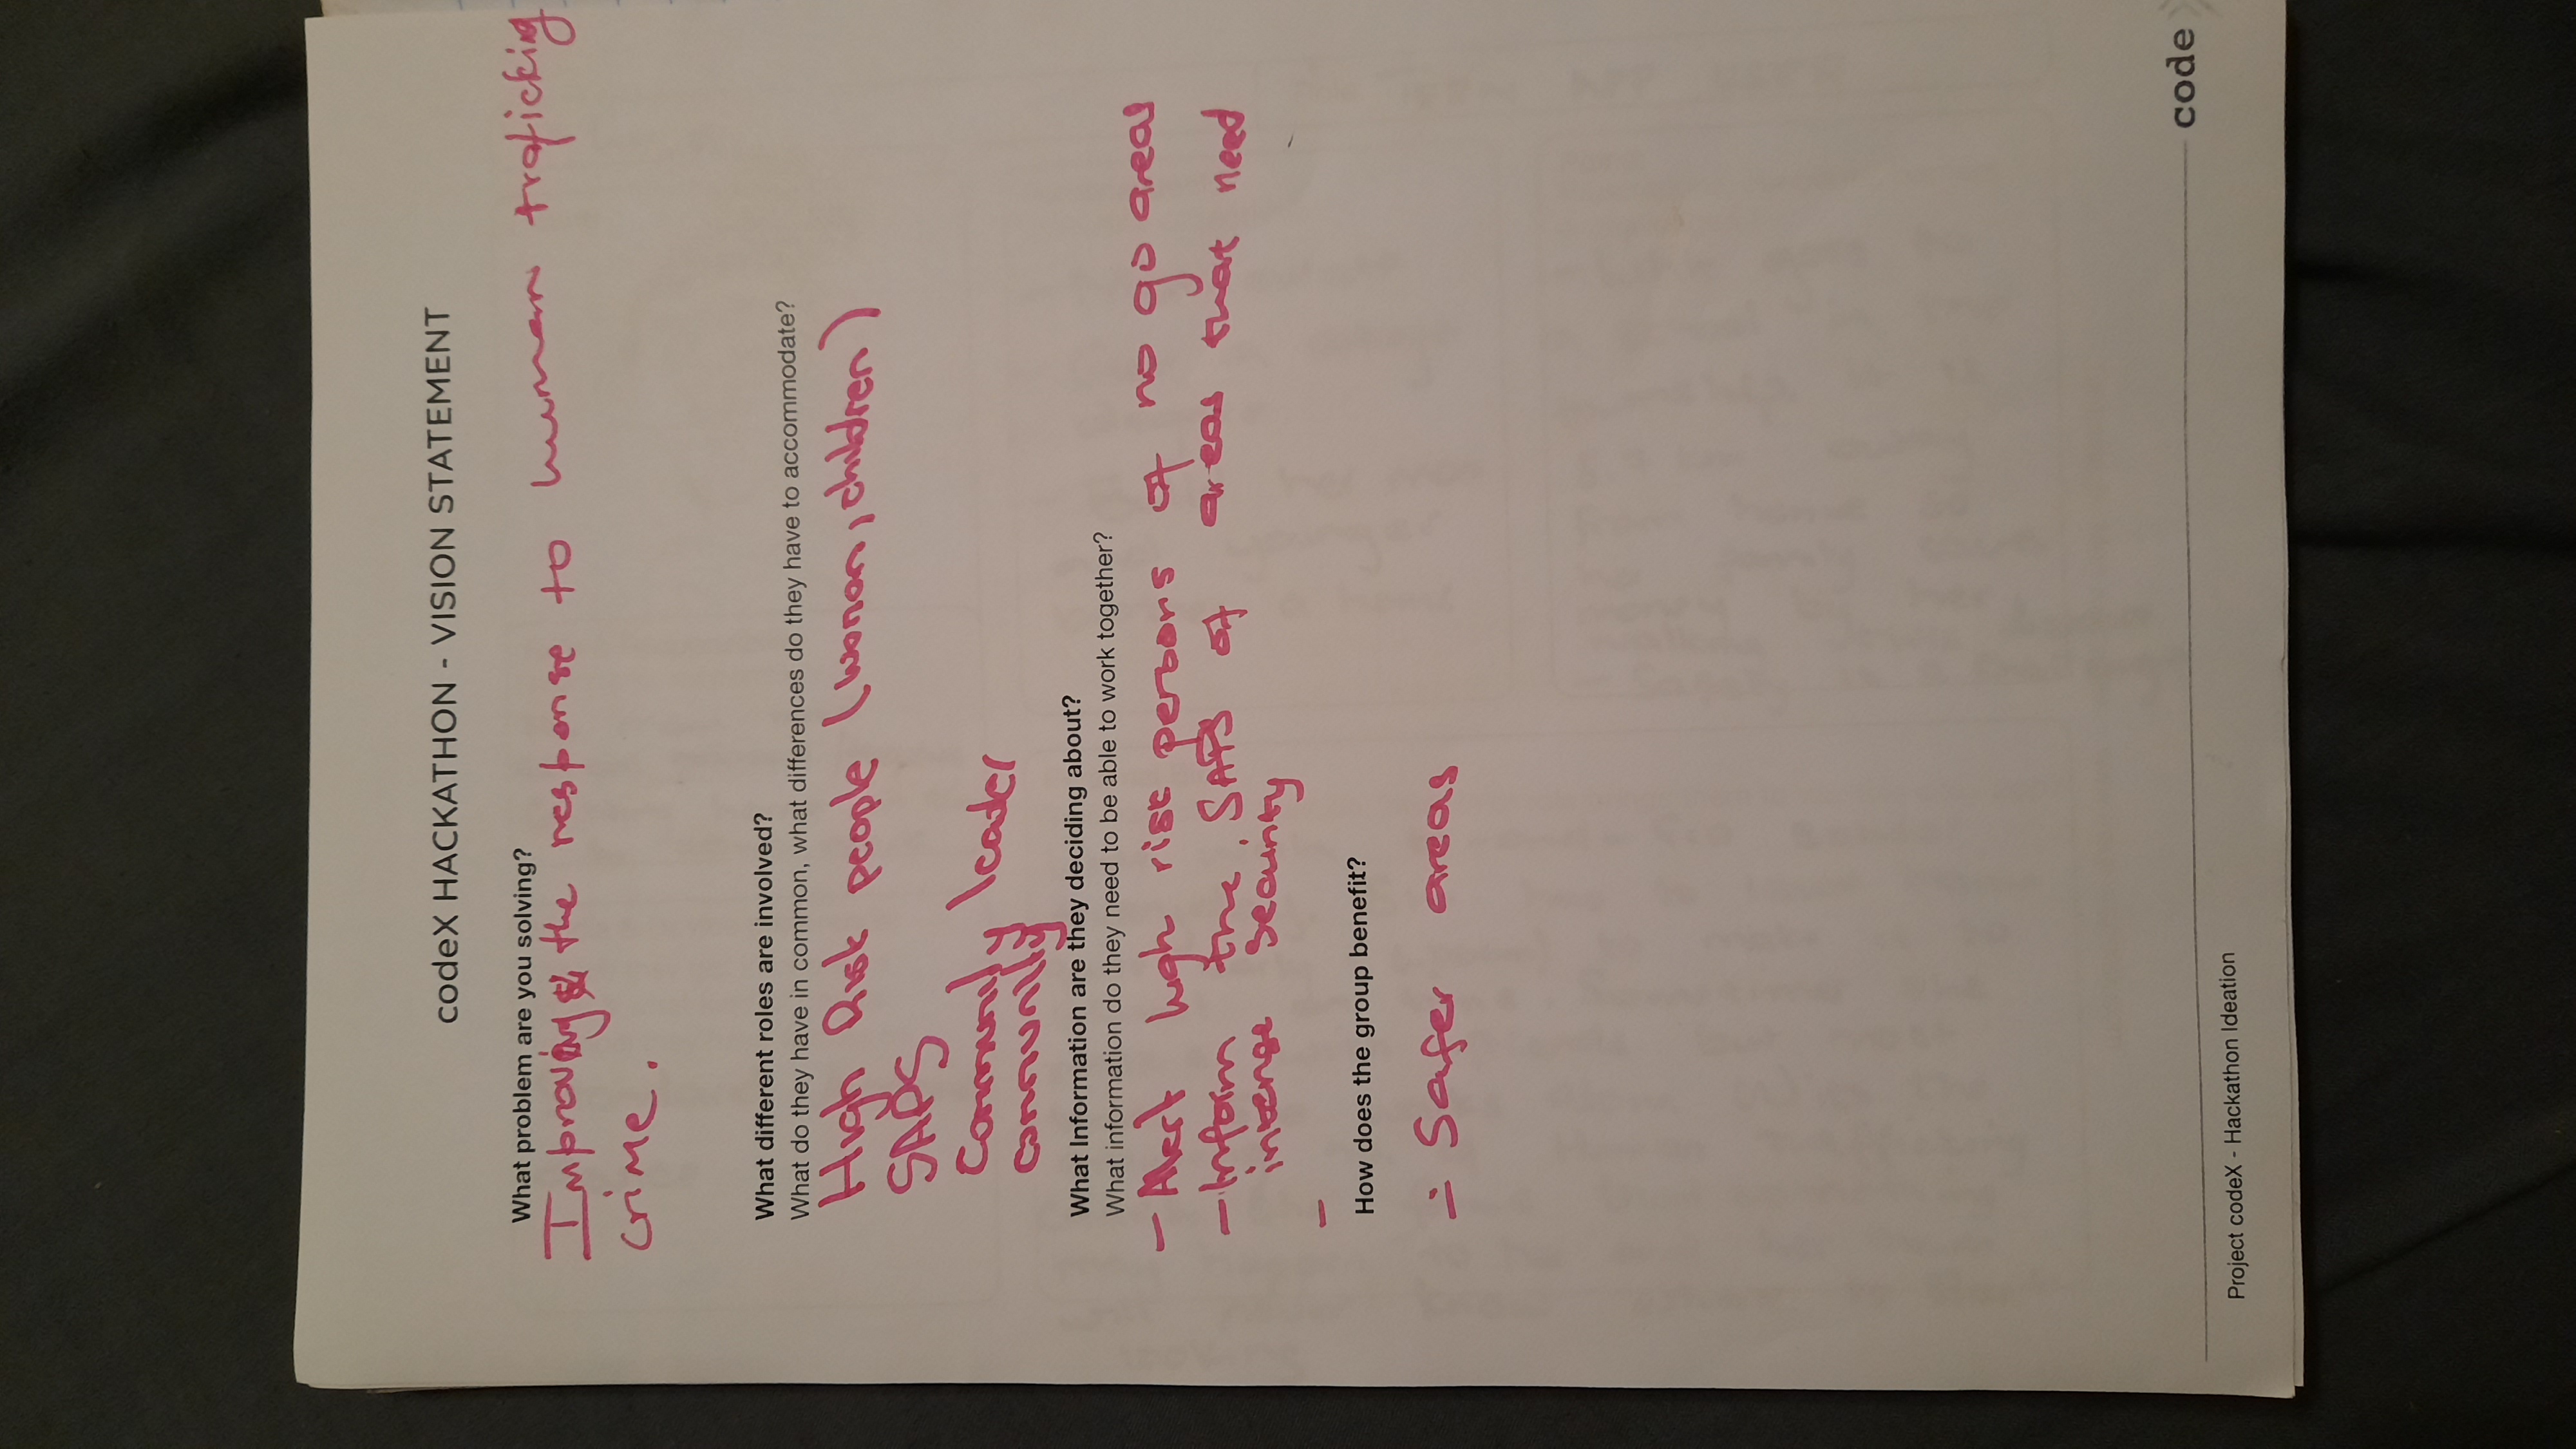 codeX HACKATHON - VISION STATEMENT
What problem are you solving?
Improving the response to human traficking
crime.
What different roles are involved?
What do they have in common, what differences do they have to accommodate?
High Risk people (woman, children)
SAPS
Community leader
community
What Information are they deciding about?
What information do they need to be able to work together?
- Alert high risk persons of no go areas
- Inform the SAPS of areas that need
intense security
-
How does the group benefit?
- Safer areas
code
Project codeX - Hackathon Ideation